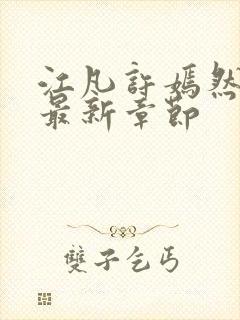 江凡許嫣然
最新章節
雙子乞丐